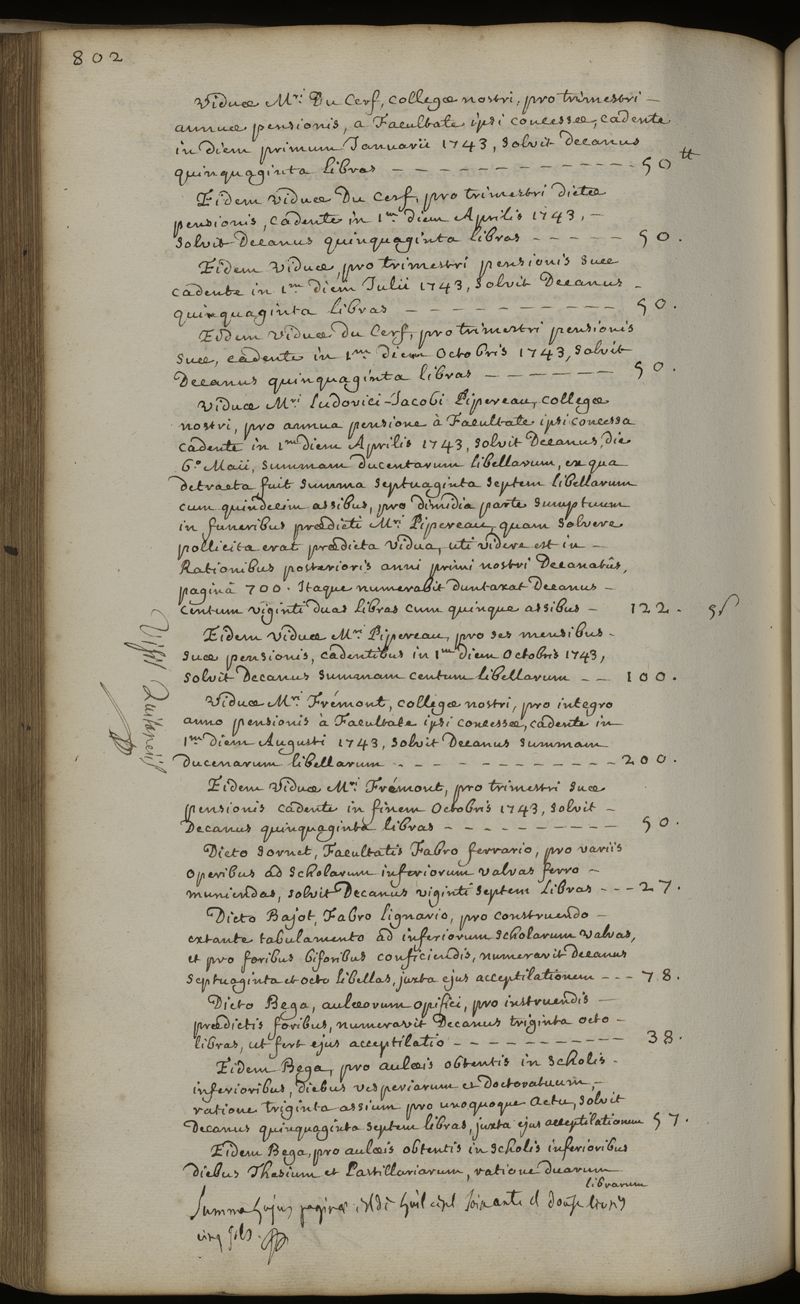 802
Viduæ M.ri Du Cerf, collegæ nostri, pro trimestri —
annuæ pensionis, a Facultate ipsi concessæ, cadente
in diem primum Januarii 1743, solvit Decanus
quinquaginta libras — — — — — — — — — — — 50 tt
Eidem viduæ Du Cerf, pro trimestri dictæ
pensionis, cadente in 1.um diem Aprilis 1743, —
solvit Decanus quinquaginta libras — — — — — 50.
Eidem viduæ, pro trimestri pensionis suæ
cadente in 1.um diem Julii 1743, solvit Decanus -
quinquaginta libras — — — — — — — — — — 50.
Eidem viduæ du Cerf, pro trimestri pensionis
suæ, cadente in 1.um diem Octobris 1743, solvit
Decanus quinquaginta libras — — — — — — 50.
Viduæ M.ri Ludovici-Jacobi Pipereau, collegæ
nostri, pro annua pensione à Facultate ipsi concessa
cadente in 1.um diem Aprilis 1743, solvit Decanus, die
6.o Maii, summam ducentarum libellarum, ex qua
detracta fuit summa septuaginta septem libellarum
cum quindecim assibus, pro dimidia parte sumptuum
in funeribus prædicti M.ri Pipereau, quam solvere
pollicita erat prædicta vidua, uti videre est in —
Rationibus posterioris anni primi nostri Decanatûs,
paginâ 700. Itaque numerabit duntaxat Decanus —
centum viginti duas libras cum quinque assibus — 122. 5 s
Eidem viduæ M.ri Pipereau, pro sex mensibus -
suæ pensionis, cadentibus in 1.um diem Octobris 1743,
solvit Decanus summam centum libellarum — — 100.
Viduæ M.ri Frémont, collegæ nostri, pro integro
anno pensionis à Facultate ipsi concessæ, cadente in
1.um diem Augusti 1743, solvit Decanus summam
ducenarum libellarum — — — — — — — — — — 200.
Eidem viduæ M.ri Frémont, pro trimestri suæ
pensionis cadente in finem Octobris 1743, solvit —
Decanus quinquaginta libras — — — — — — — — 50.
Dicto Sornet, Facultatis Fabro ferrario, pro variis
operibus ad scholarum inferiorum valvas ferro —
muniendas, solvit Decanus viginti septem libras — — — 27.
Dicto Bajot, Fabro lignario, pro construendo —
extante tabulamento ad inferiorum scholarum valvas,
et pro foribus biforibus conficiendis, numeravit Decanus
septuaginta et octo libellas, juxta ejus acceptilationem — — — 78.
Dicto Bega, aulæorum opifici, pro instruendis —
prædictis foribus, numeravit Decanus triginta octo —
libras, ut fert ejus acceptilatio — — — — — — — — — 38.
Eidem Bega, pro aulæis obtentis in scholis -
inferioribus, diebus vesperiarum et doctoratuum, —
ratione triginta assium pro unoquoque actu, solvit
Decanus quinquaginta septem libras, juxta ejus acceptilationem 57.
Eidem Bega, pro aulæis obtentis in scholis inferioribus
diebus Thesium et Pastillariarum, ratione duarum
librarum
Summa hujus paginæ est de huit cent soixante et douse livres
cinq sols.